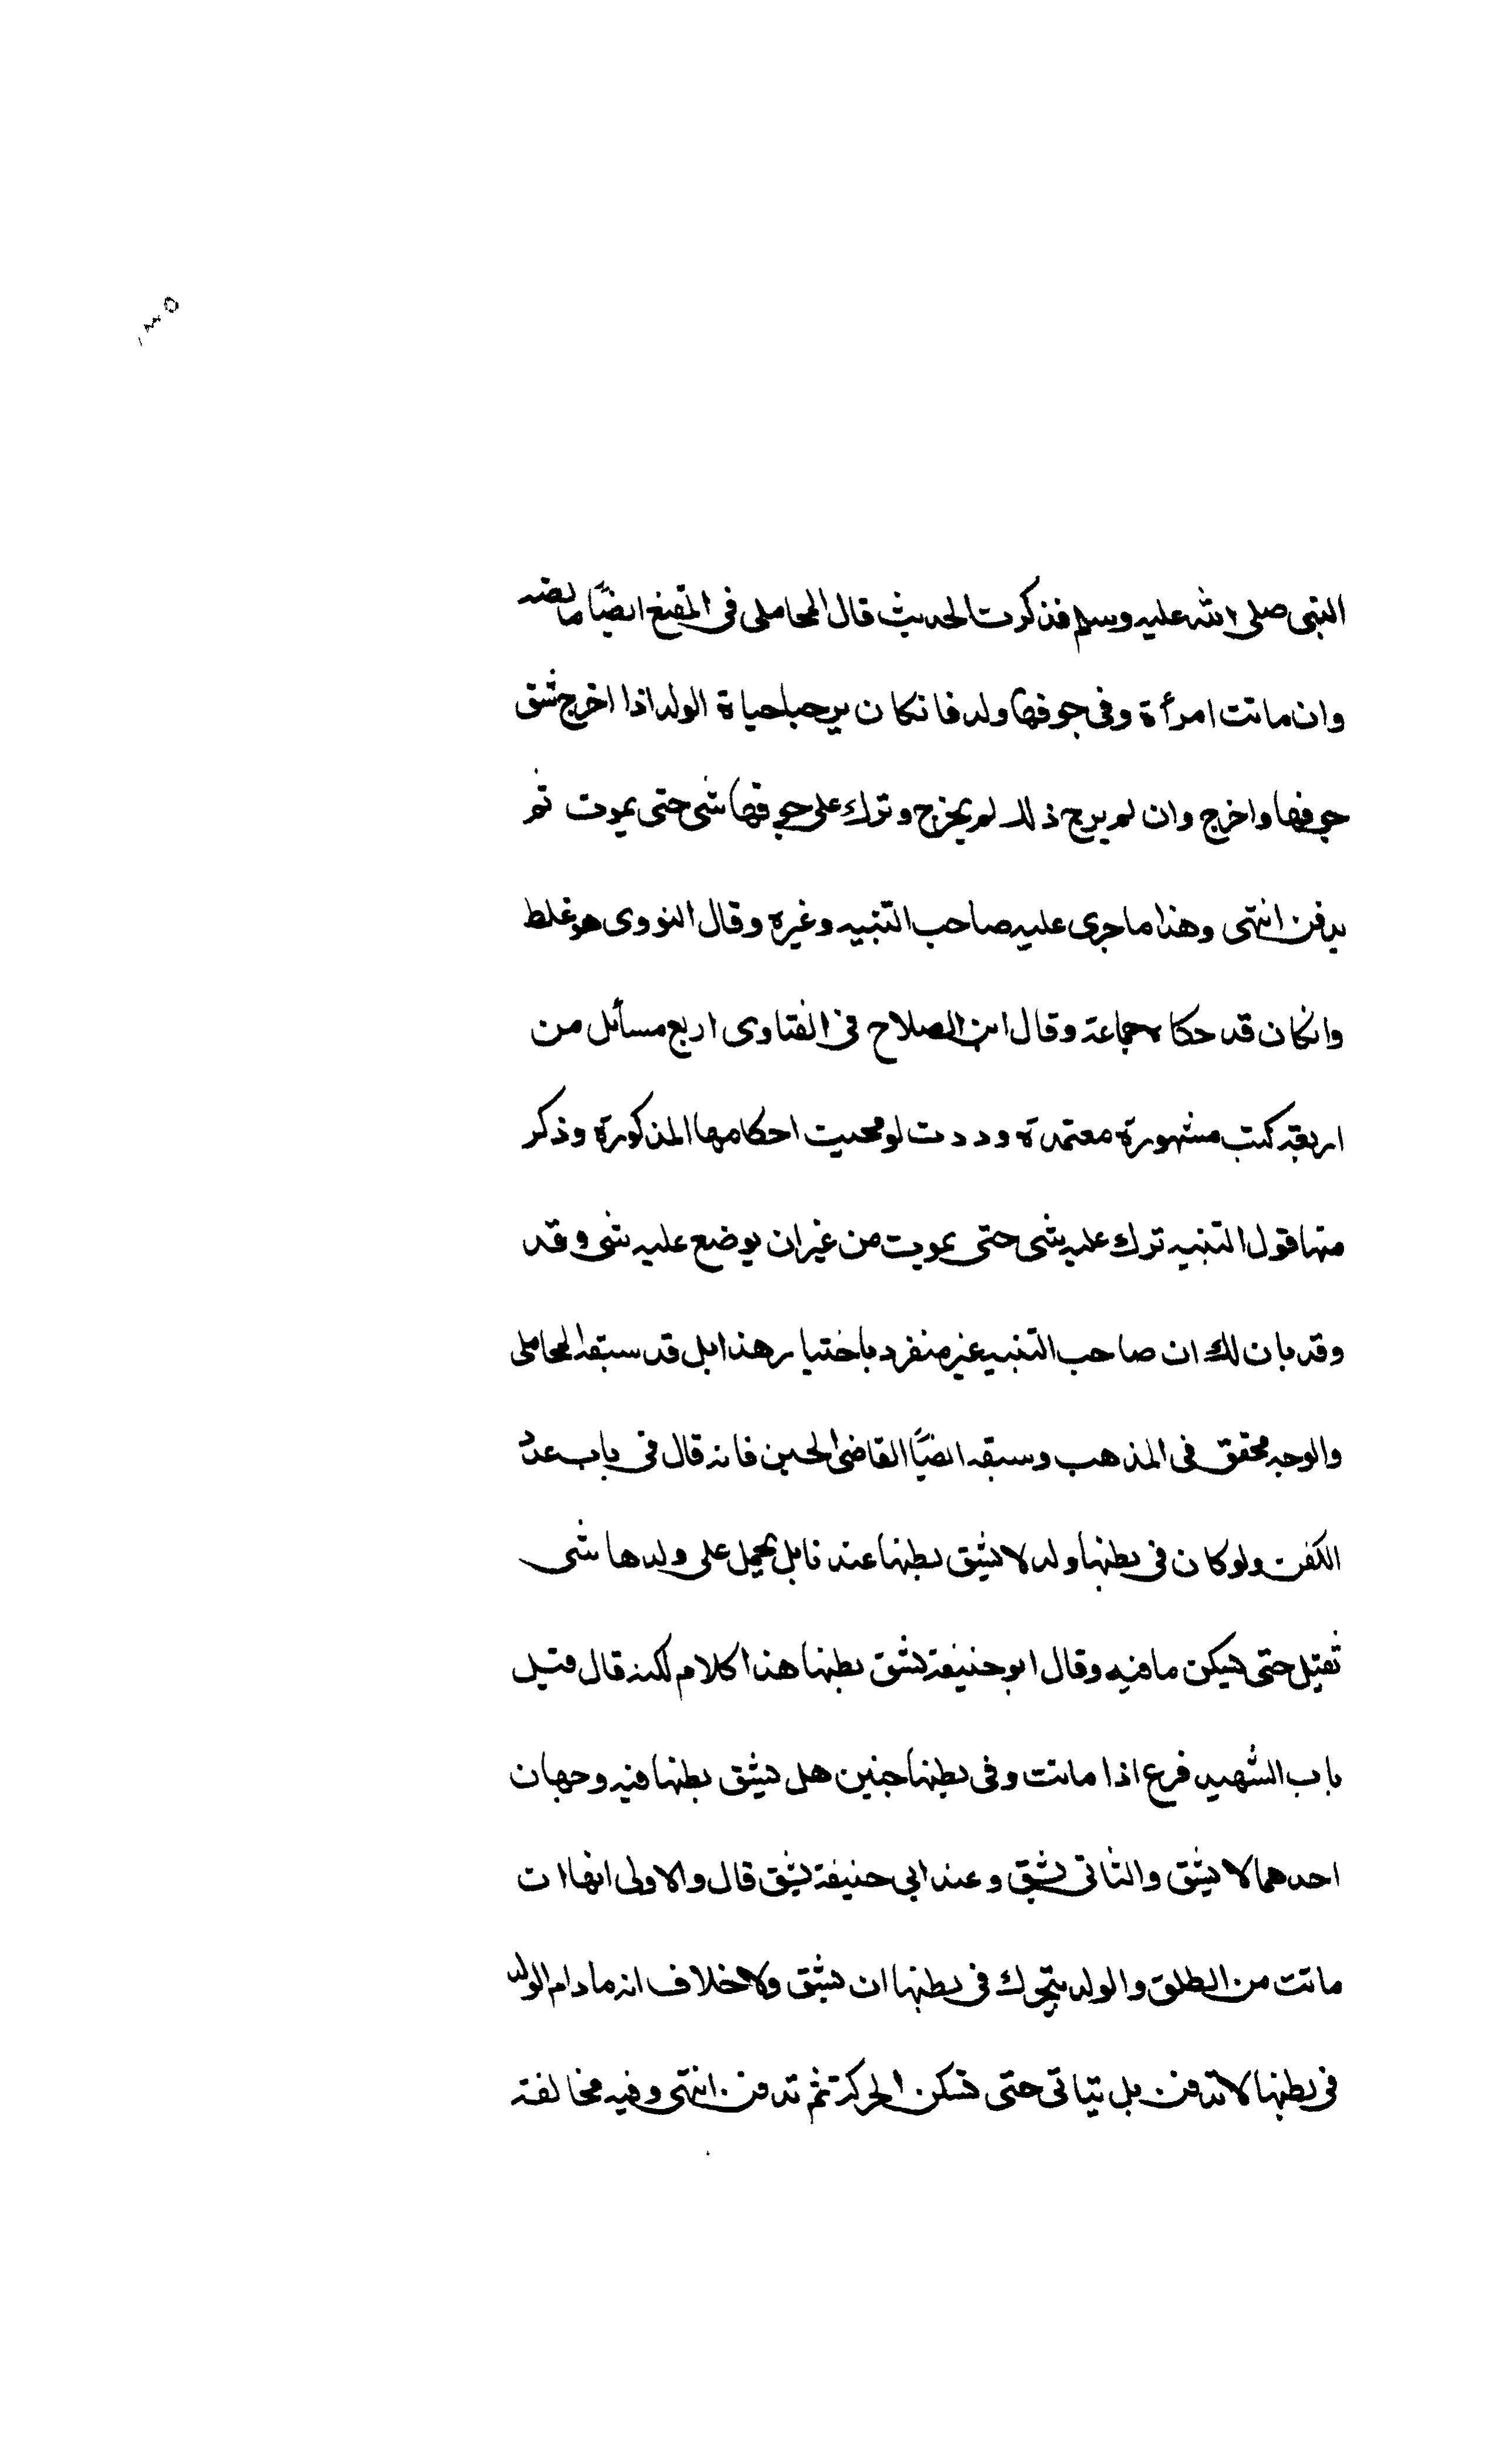 النبى صلى الله عليه وسلم فذكرت الحديث قال المحاملى فى المقنع ايضًا ما نصه
وان ماتت امرأة وفى جوفها ولد فان كان يرجا حياة الولد اذا اخرج شق
جوفها واخرج وان لم يرج ذلك لم يخرج وترك على جوفها شى حتى يموت ثم
يدفن انتهى وهذا ما جرى عليه صاحب التنبيه وغيره وقال النووى هو غلط
وان كان قد حكاه جماعة وقال ابن الصلاح فى الفتاوى اربع مسائل من
اربعة كتب مشهورة معتمدة وددت لو محيت احكامها المذكورة وذكر
منها قول التنبيه ترك عليه شى حتى يموت من غير ان يوضع عليه شى وقد
وقد بان لك ان صاحب التنبيه غير منفرد باختيار هذا بل قد سبقه المحاملى
والوجه محقق فى المذهب وسبقه ايضًا القاضى الحسين فانه قال فى باب عدد
الكفن ولو كان فى بطنها ولد لا يشق بطنها عندنا بل يحمل على ولدها شى
ثقيل حتى يسكن ما فيه وقال ابو حنيفة يشق بطنها هذا كلام لكنه قال قبيل
باب الشهيد فرع اذا ماتت وفى بطنها جنين هل يشق بطنها فيه وجهان
احدهما لا يشق والثانى يشق وعند ابى حنيفة يشق قال والاولى انها ان
ماتت من الطلق والولد يتحرك فى بطنها ان يشق ولا خلاف انه ما دام الولد
فى بطنها لا تدفن بل يتانى حتى تسكن الحركة ثم تدفن انتهى وفيه مخالفة